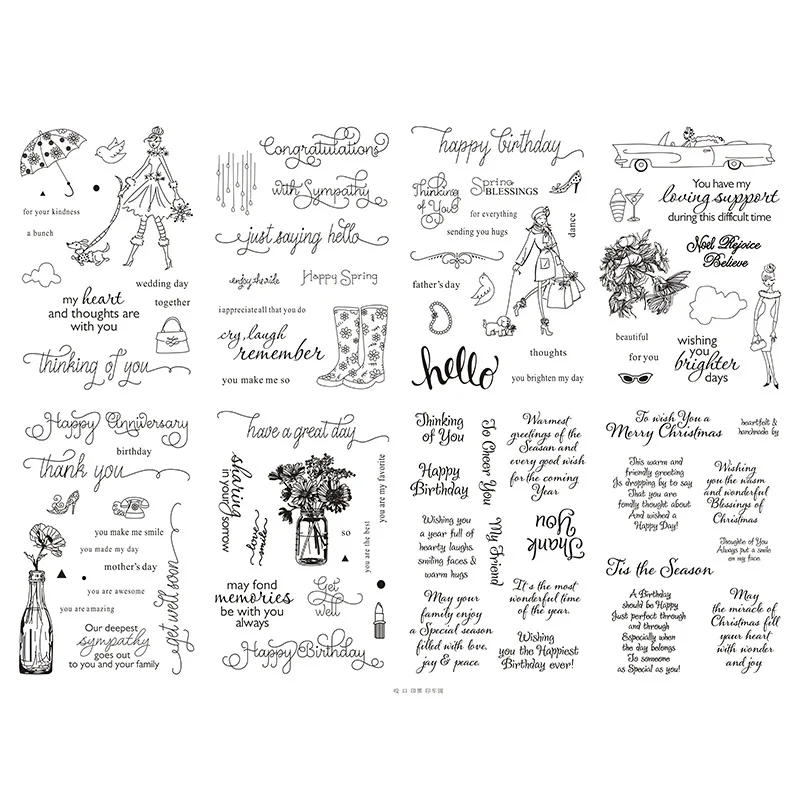 for your kindness
a bunch
wedding day
together
my heart
and thoughts are
with you
thinking of you
Congratulations
with Sympathy
just saying hello
enjoy the ride
Happy Spring
i appreciate all that you do
cry, laugh
remember
you make me so
happy birthday
Thinking
of You
Spring
BLESSINGS
for everything
sending you hugs
dance
father's day
hello
thoughts
you brighten my day
You have my
loving support
during this difficult time
Noel Rejoice
Believe
beautiful
for you
wishing
you
brighter
days
Happy Anniversary
birthday
thank you
you make me smile
you made my day
mother's day
you are awesome
you are amazing
get well soon
Our deepest
sympathy
goes out
to you and your family
have a great day
sharing
in your sorrow
enjoy
smile
so
you are the best
you are my favorite
may fond
memories
be with you
always
Get
well
Happy Birthday
Thinking
of You
Happy
Birthday
To Cheer You
Warmest
greetings of the
Season and
every good wish
for the coming
Year
Wishing you
a year full of
hearty laughs
smiling faces &
warm hugs
My Friend
Thank
You
May your
family enjoy
a Special season
filled with love,
jay & peace.
It's the most
wonderful time
of the year.
Wishing
you the Happiest
Birthday ever!
To wish You a
Merry Christmas
heartfelt &
handmade by
This warm and
friendly greeting
Is dropping by to say
That you are
fondly thought about
And wished a
Happy Day!
Wishing
you the warm
and wonderful
Blessings of
Christmas
Thoughts of You
Always put a smile
on my face.
Tis the Season
A Birthday
should be Happy
Just perfect through
and through
Especially when
the day belongs
To someone
as Special as you!
May
the miracle of
Christmas fill
your heart
with wonder
and joy